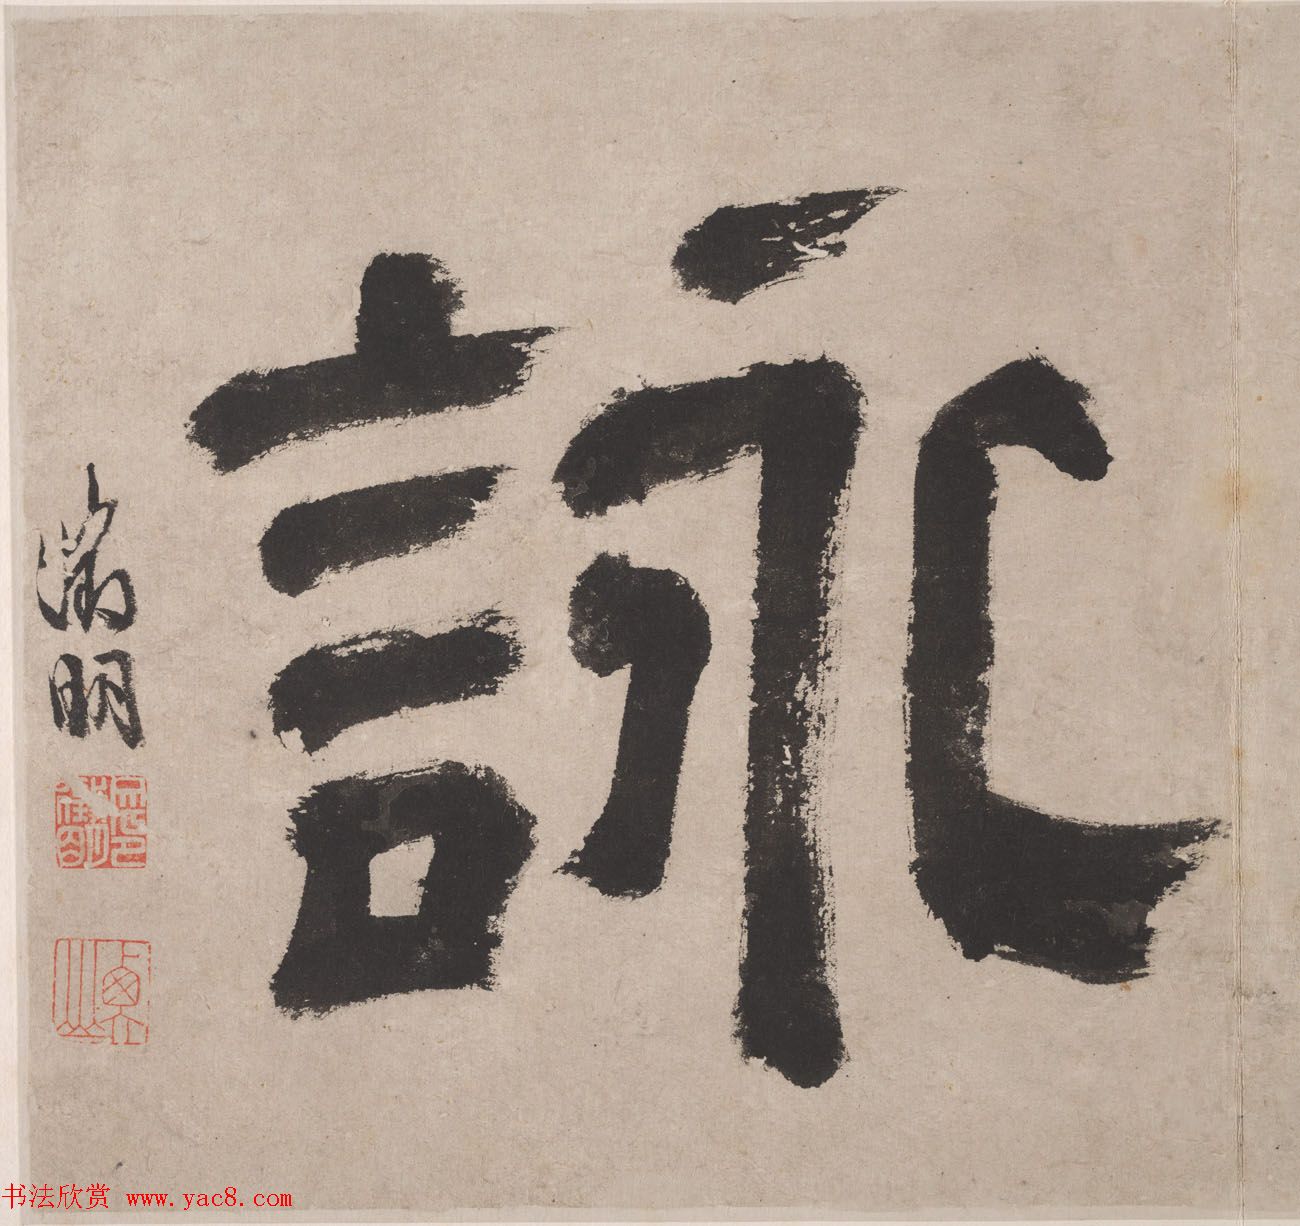 詠
徵明
书法欣赏 www.yac8.com